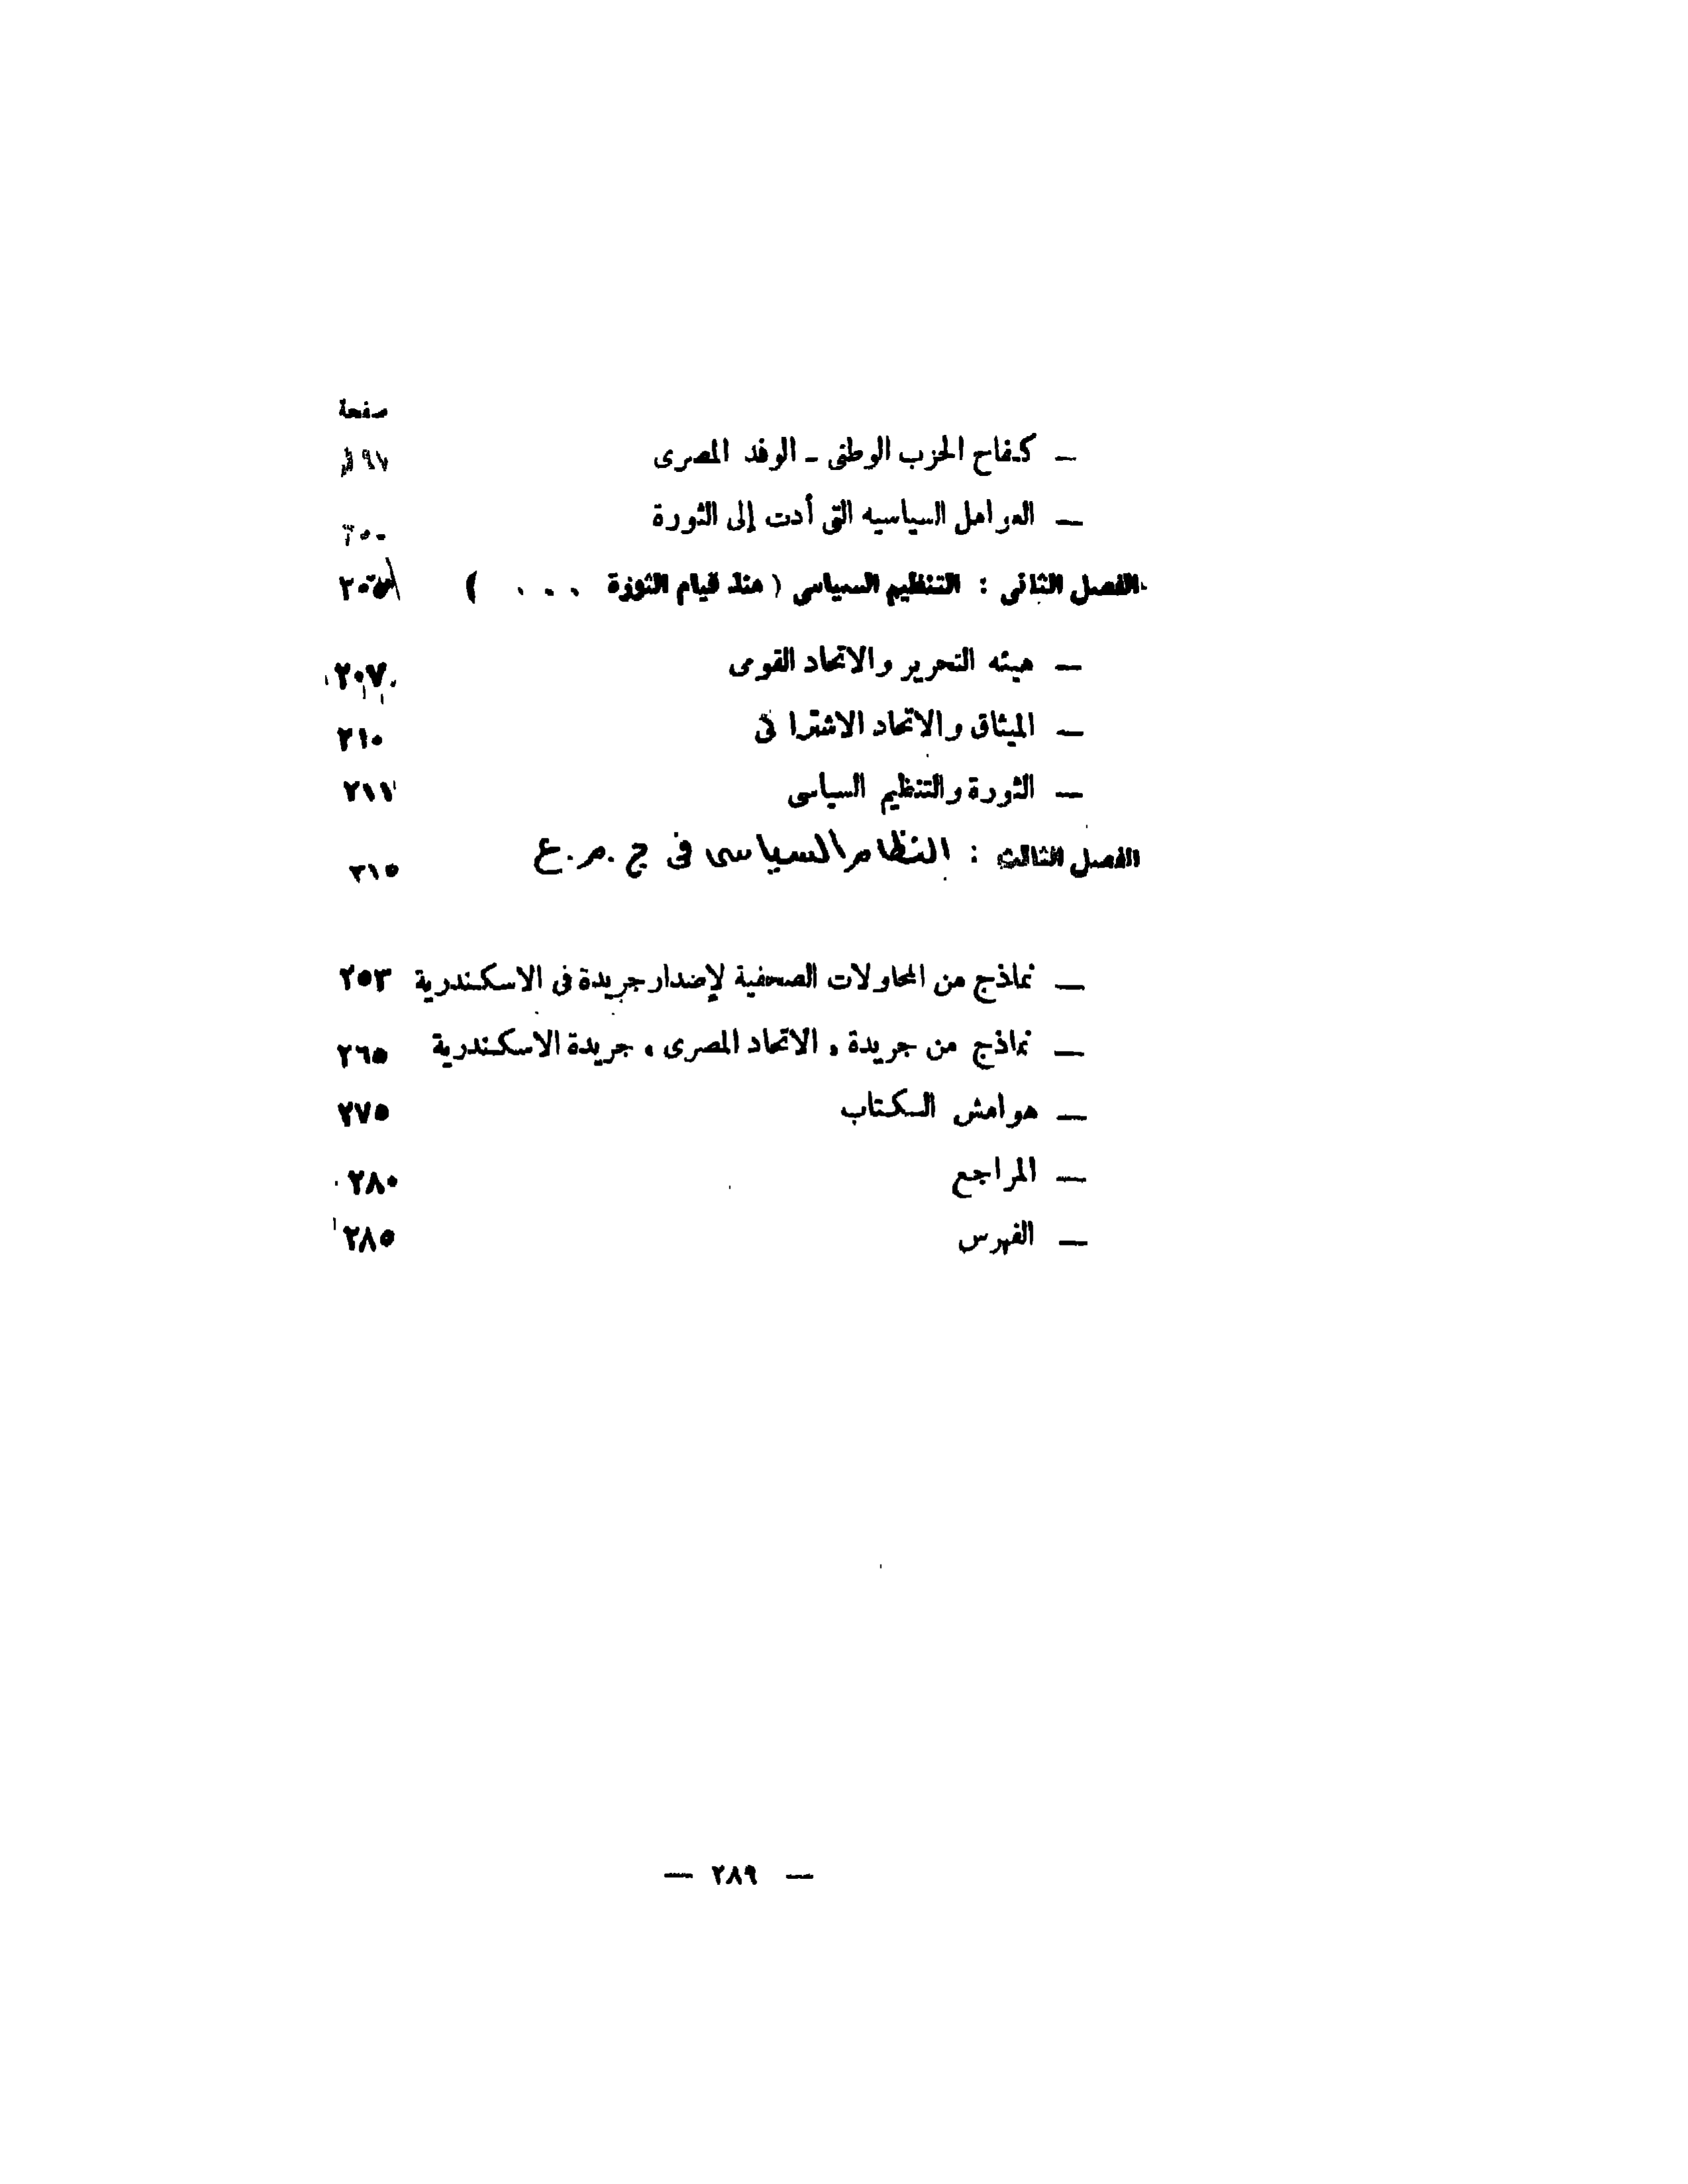 صفحة
— كفاح الحزب الوطنى - الوفد المصرى ١٩٧
— العوامل السياسيه التى أدت إلى الثورة
الفصل الثانى : التنظيم السياسى ( منذ قيام الثورة . . . ) ٢٠٥
— هيئه التحرير والاتحاد القومى ٢٠٧
— الميثاق والاتحاد الاشتراكى ٢١٠
— الثورة والتنظيم السياسى ٢١١
الفصل الثالث : النظام السياسى فى ج.م.ع ٢١٥
— نماذج من المحاولات الصحفية لإصدار جريدة فى الاسكندرية ٢٥٣
— نماذج من جريدة « الاتحاد المصرى » جريدة الاسكندرية ٢٦٥
— هوامش الكتاب ٢٧٥
— المراجع ٢٨٠
— الفهرس ٢٨٥
— ٢٨٩ —